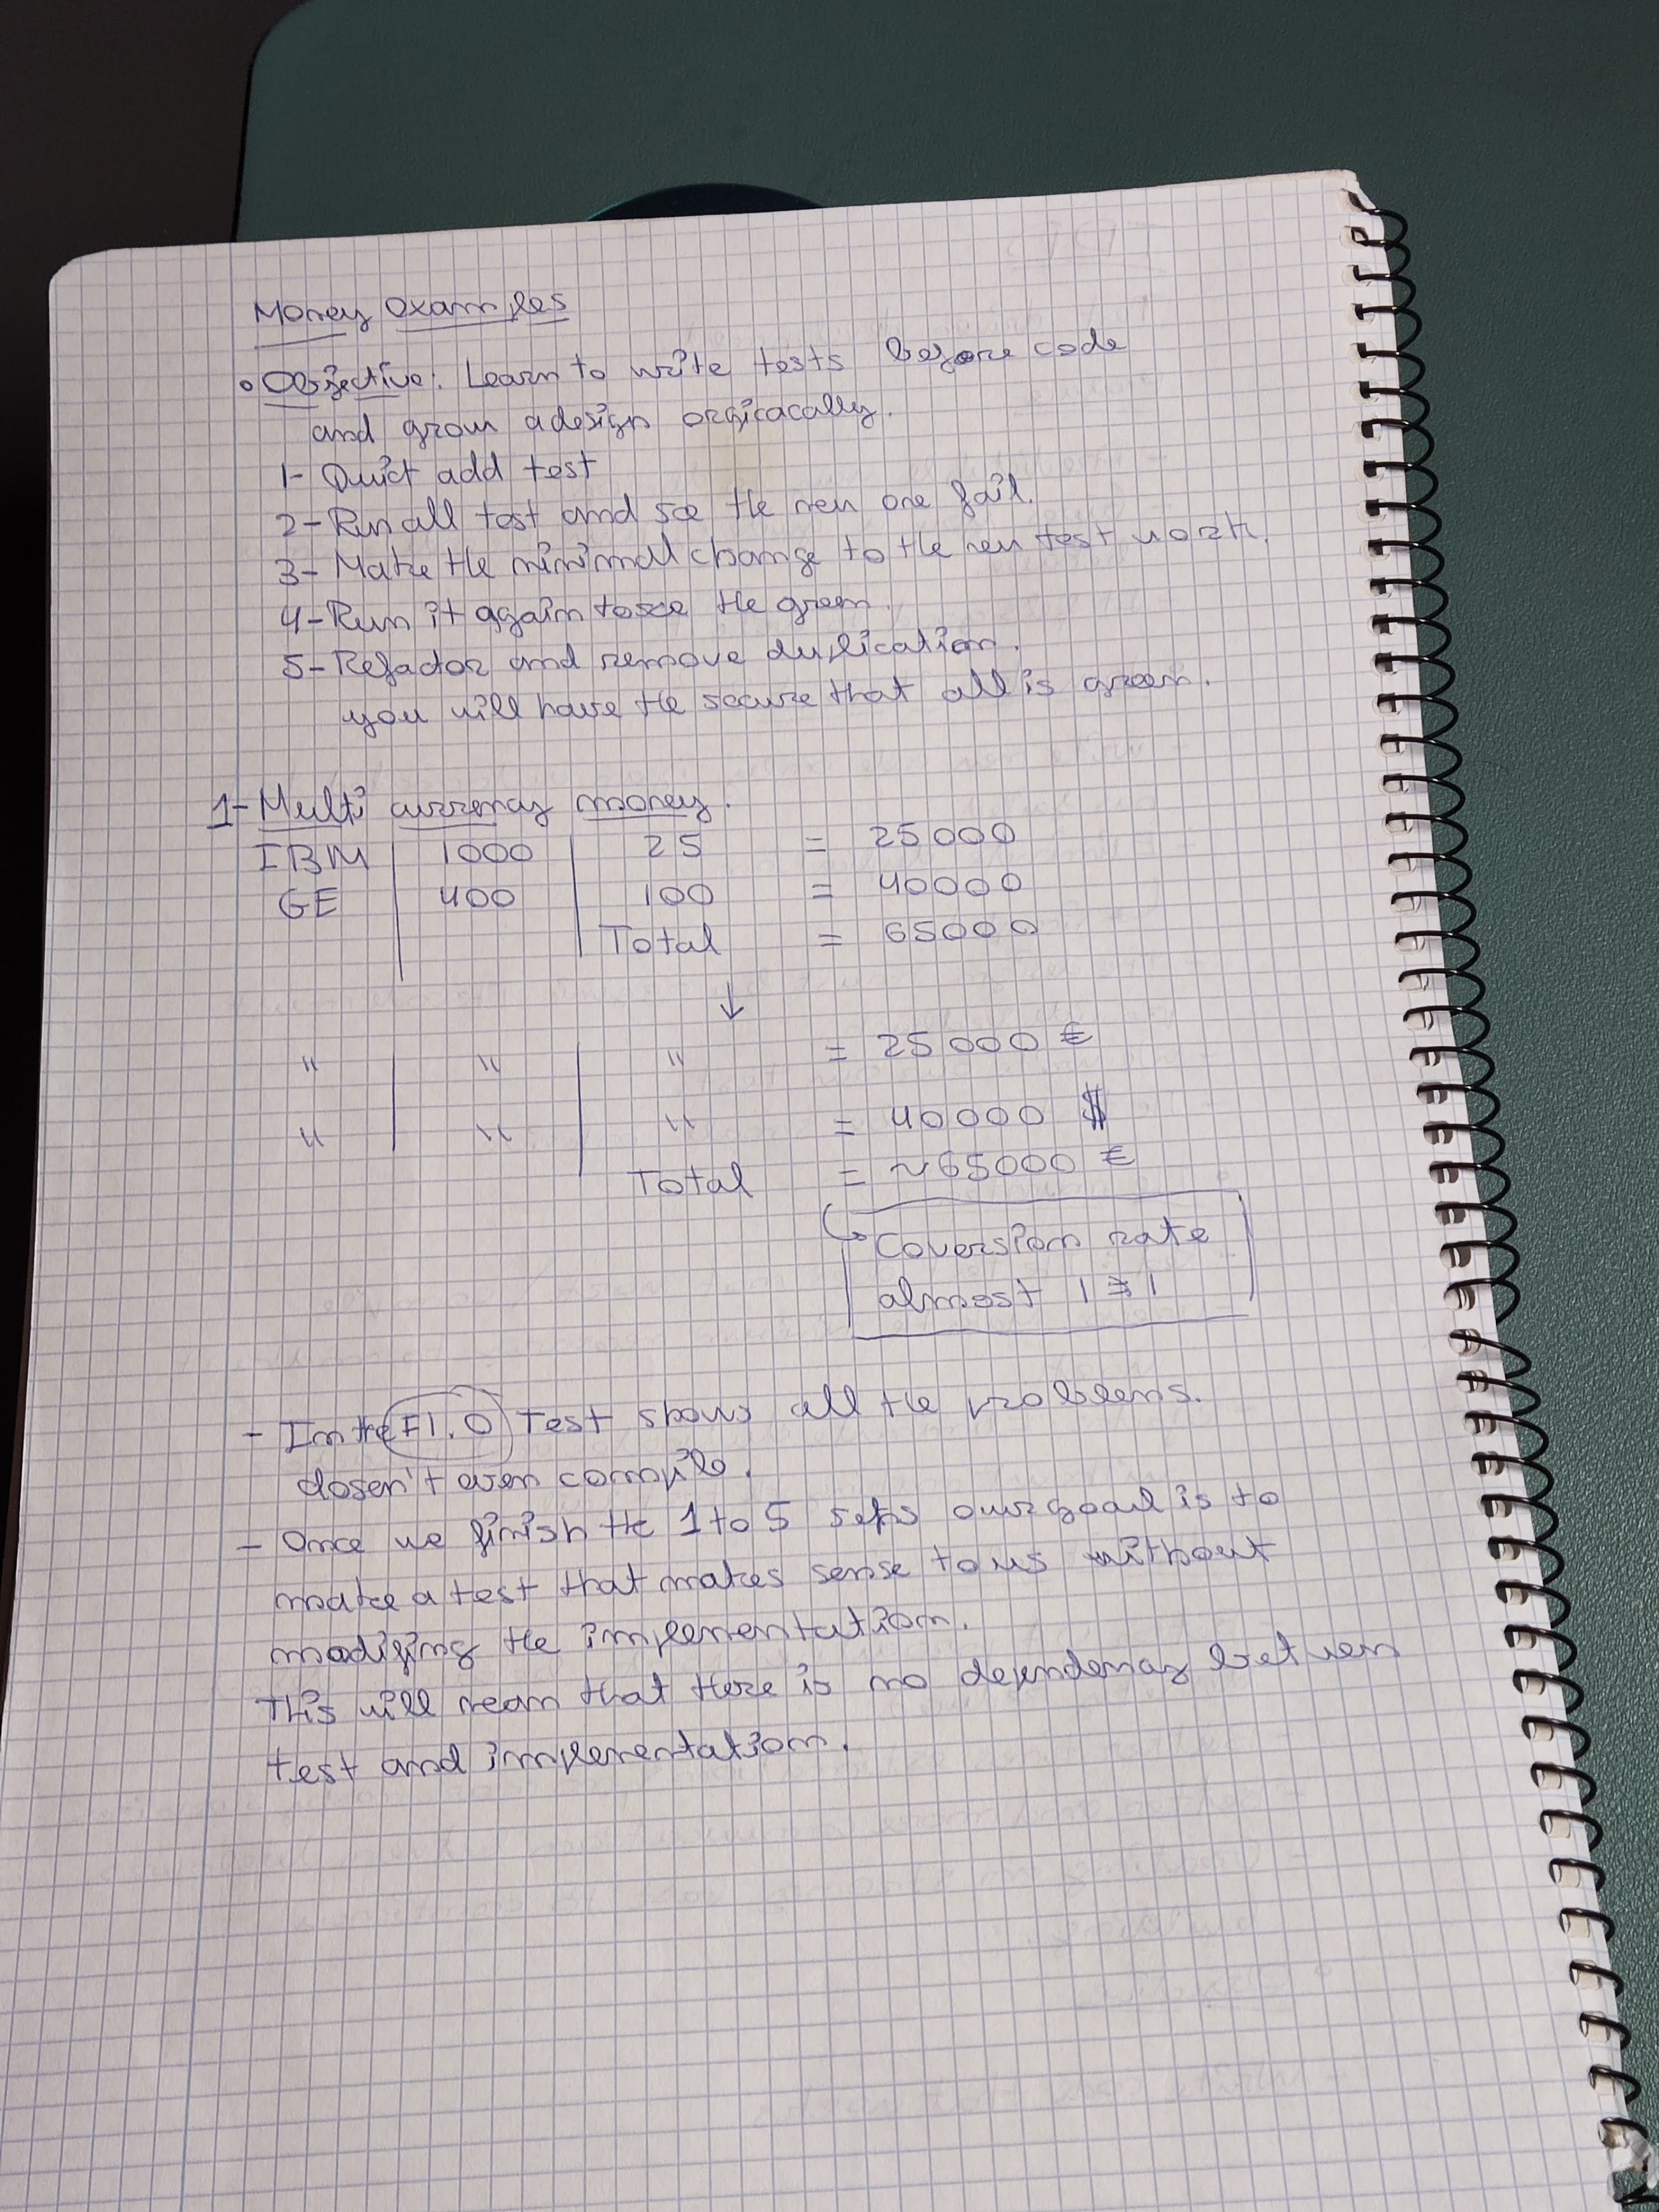 Money examples
• Objective: Learn to write tests before code
and grow a design orgicacally.
1- Quict add test
2- Run all test and see the new one fail.
3- Make the minimal change to the new test work.
4- Run it again to see the green.
5- Refactor and remove duplication.
you will have the secure that all is green.
1- Multi currency money.
IBM | 1000 | 25 = 25000
GE | 400 | 100 = 40000
Total = 65000
↓
" | " | " = 25000 €
" | " | " = 40000 $
Total = ~65000 €
Coversion rate
almost 1 1
- In the F1.0 Test shows all the problems.
dosen't even compile.
- Once we finish the 1 to 5 seps our goal is to
make a test that makes sense to us without
modifing the implementation.
This will mean that there is no dependency between
test and implementation.